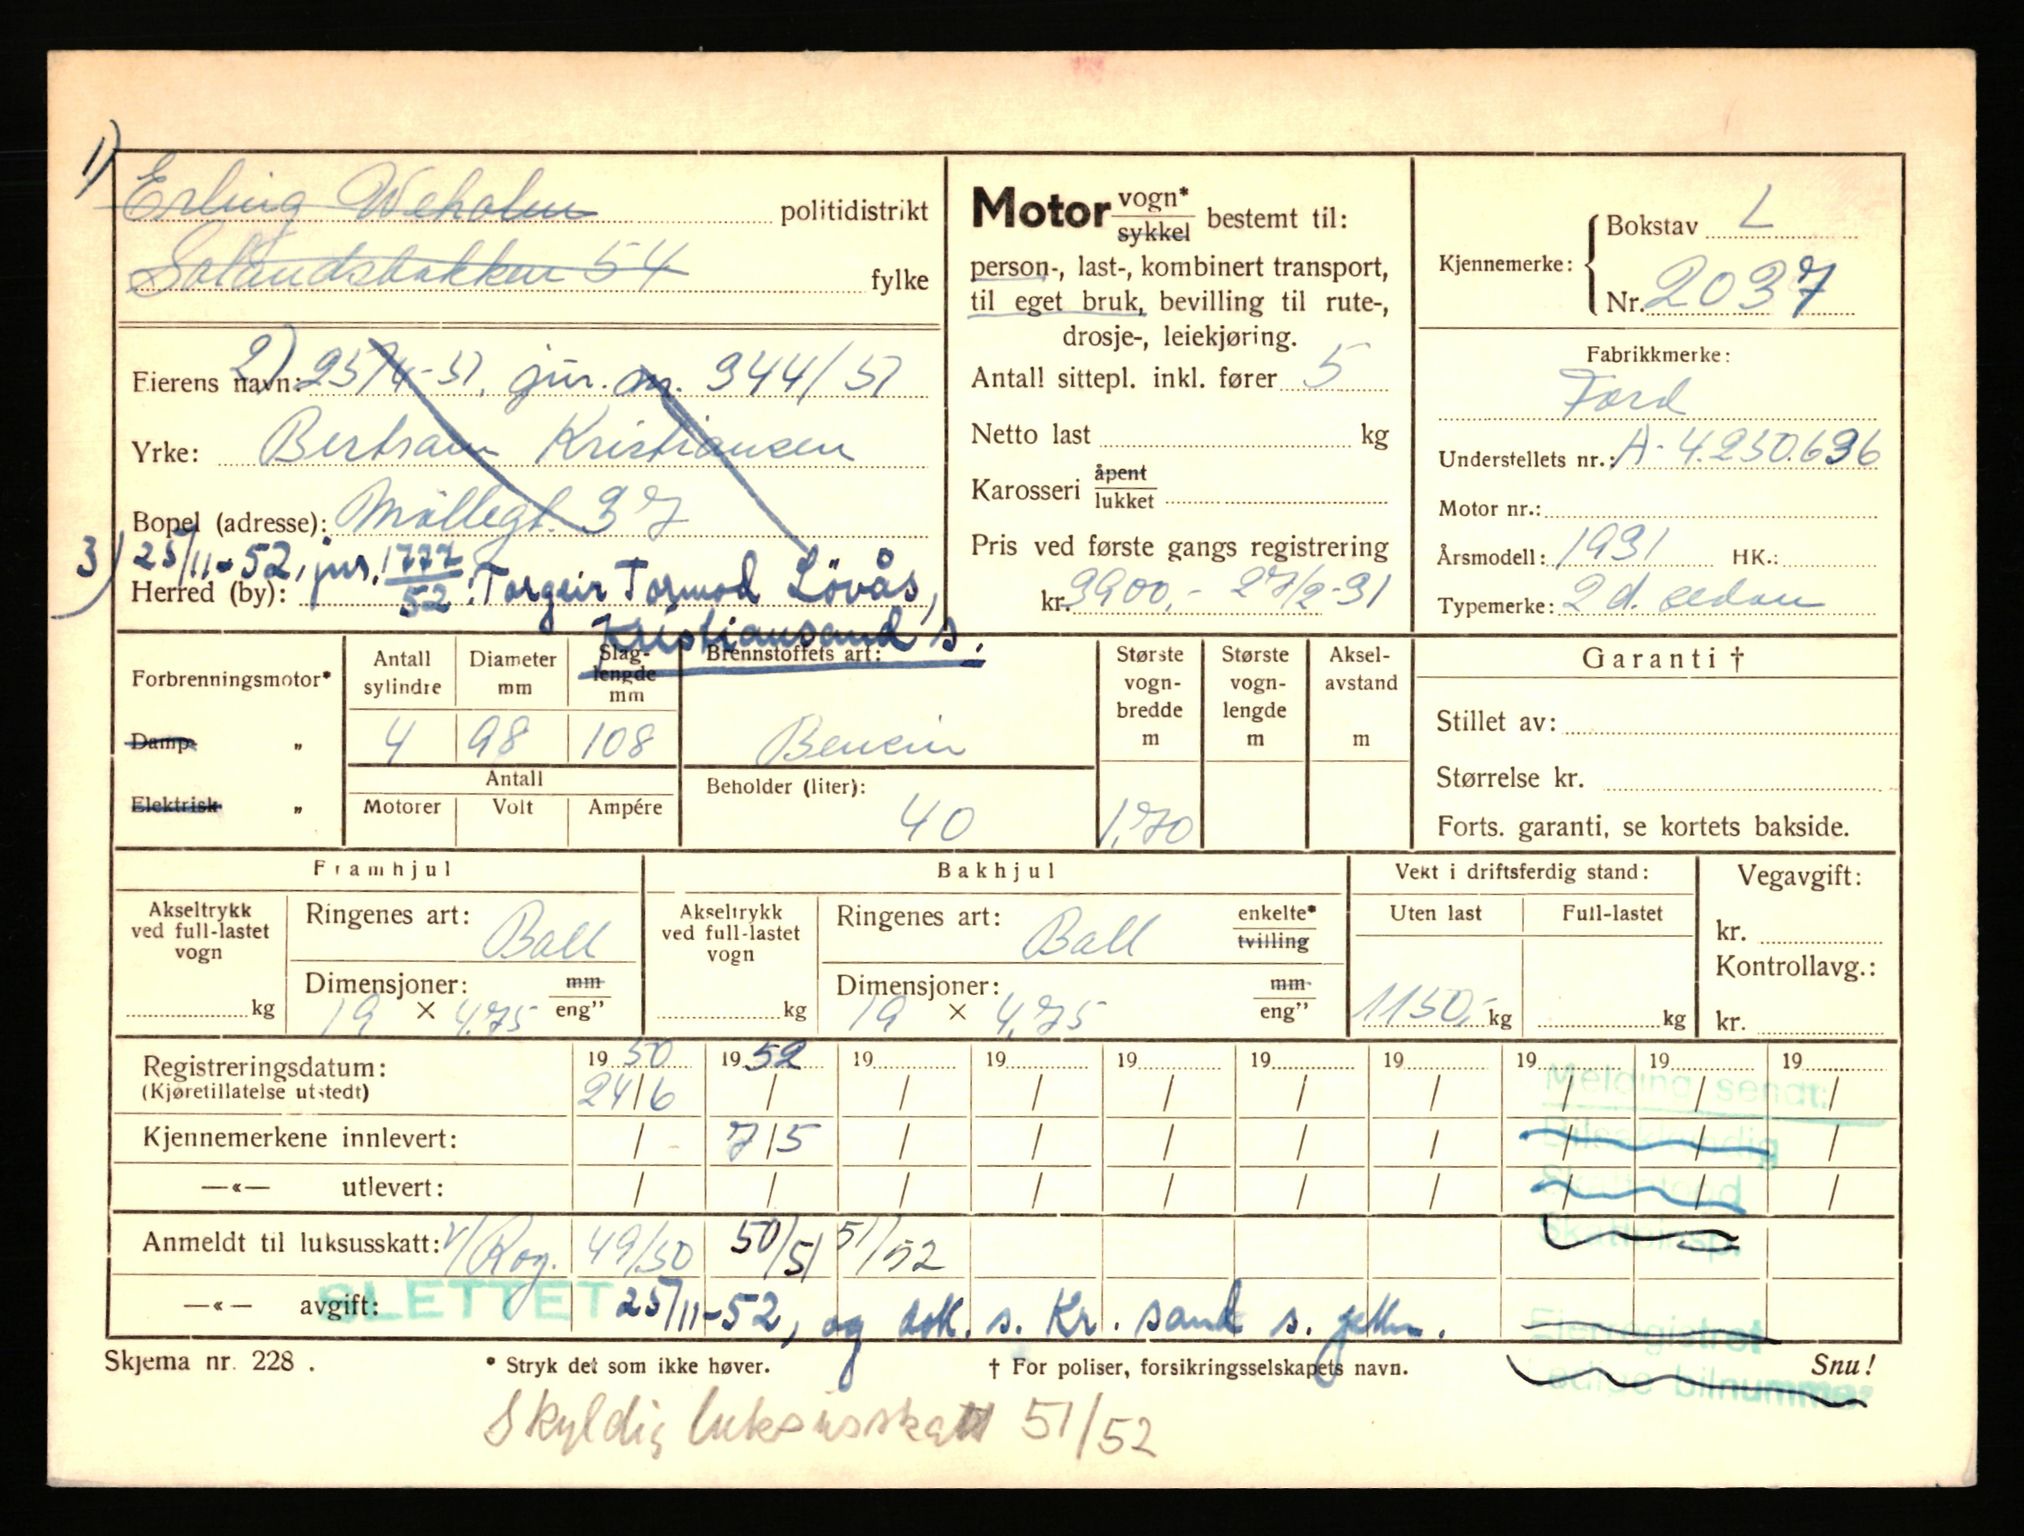 1)
Erling Weholm politidistrikt
Solandsbakken 54 fylke
Eierens navn: 2) 25/4-51, jnr. 344/51
Yrke: Bertram Kristiansen
Bopel (adresse): Möllegt. 37
3) 25/11-52, jnr. 1777/52: Torgeir Tormod Lövås,
Herred (by):
Kristiansand s.
Motor vogn*/sykkel bestemt til:
person-, last-, kombinert transport,
til eget bruk, bevilling til rute-,
drosje-, leiekjøring.
Antall sittepl. inkl. fører 5
Netto last kg
Karosseri åpent/lukket
Pris ved første gangs registrering
kr. 3900,- 27/2-31
Kjennemerke: Bokstav L
Nr. 2037
Fabrikkmerke:
Ford
Understellets nr.: A-4.230.636
Motor nr.:
Årsmodell: 1931 HK.:
Typemerke: 2 d. sedan
Forbrenningsmotor*
Damp "
Elektrisk "
Antall sylindre
Diameter mm
Slag-lengde mm
4 98 108
Antall
Motorer Volt Ampére
Brennstoffets art:
Bensin
Beholder (liter):
40
Største vogn-bredde m
1,70
Største vogn-lengde m
Aksel-avstand m
Garanti †
Stillet av:
Størrelse kr.
Forts. garanti, se kortets bakside.
Framhjul
Akseltrykk ved full-lastet vogn
kg
Ringenes art: Ball
Dimensjoner: mm
19 × 4,75 eng"
Bakhjul
Akseltrykk ved full-lastet vogn
kg
Ringenes art: Ball enkelte*/tvilling
Dimensjoner: mm
19 × 4,75 eng"
Vekt i driftsferdig stand:
Uten last Full-lastet
1150,- kg kg
Vegavgift:
kr.
Kontrollavg.:
kr.
Registreringsdatum: 1950 1952 19 19 19 19 19 19 19 19
(Kjøretillatelse utstedt) 24/6 / / / / / / / / /
Melding sendt:
Kjennemerkene innlevert: / 7/5 / / / / / / / /
Bilsakkyndig
—«— utlevert: / / / / / / / / / /
Anmeldt til luksusskatt: v/Rog. 49/50 50/51 51/52
—«— avgift: 25/11-52, og dok. s. Kr. sand s.
SLETTET
Eierregistret
Ledige bilnummer
Skjema nr. 228.
* Stryk det som ikke høver.
† For poliser, forsikringsselskapets navn.
Snu!
Skyldig luksusskatt 51/52